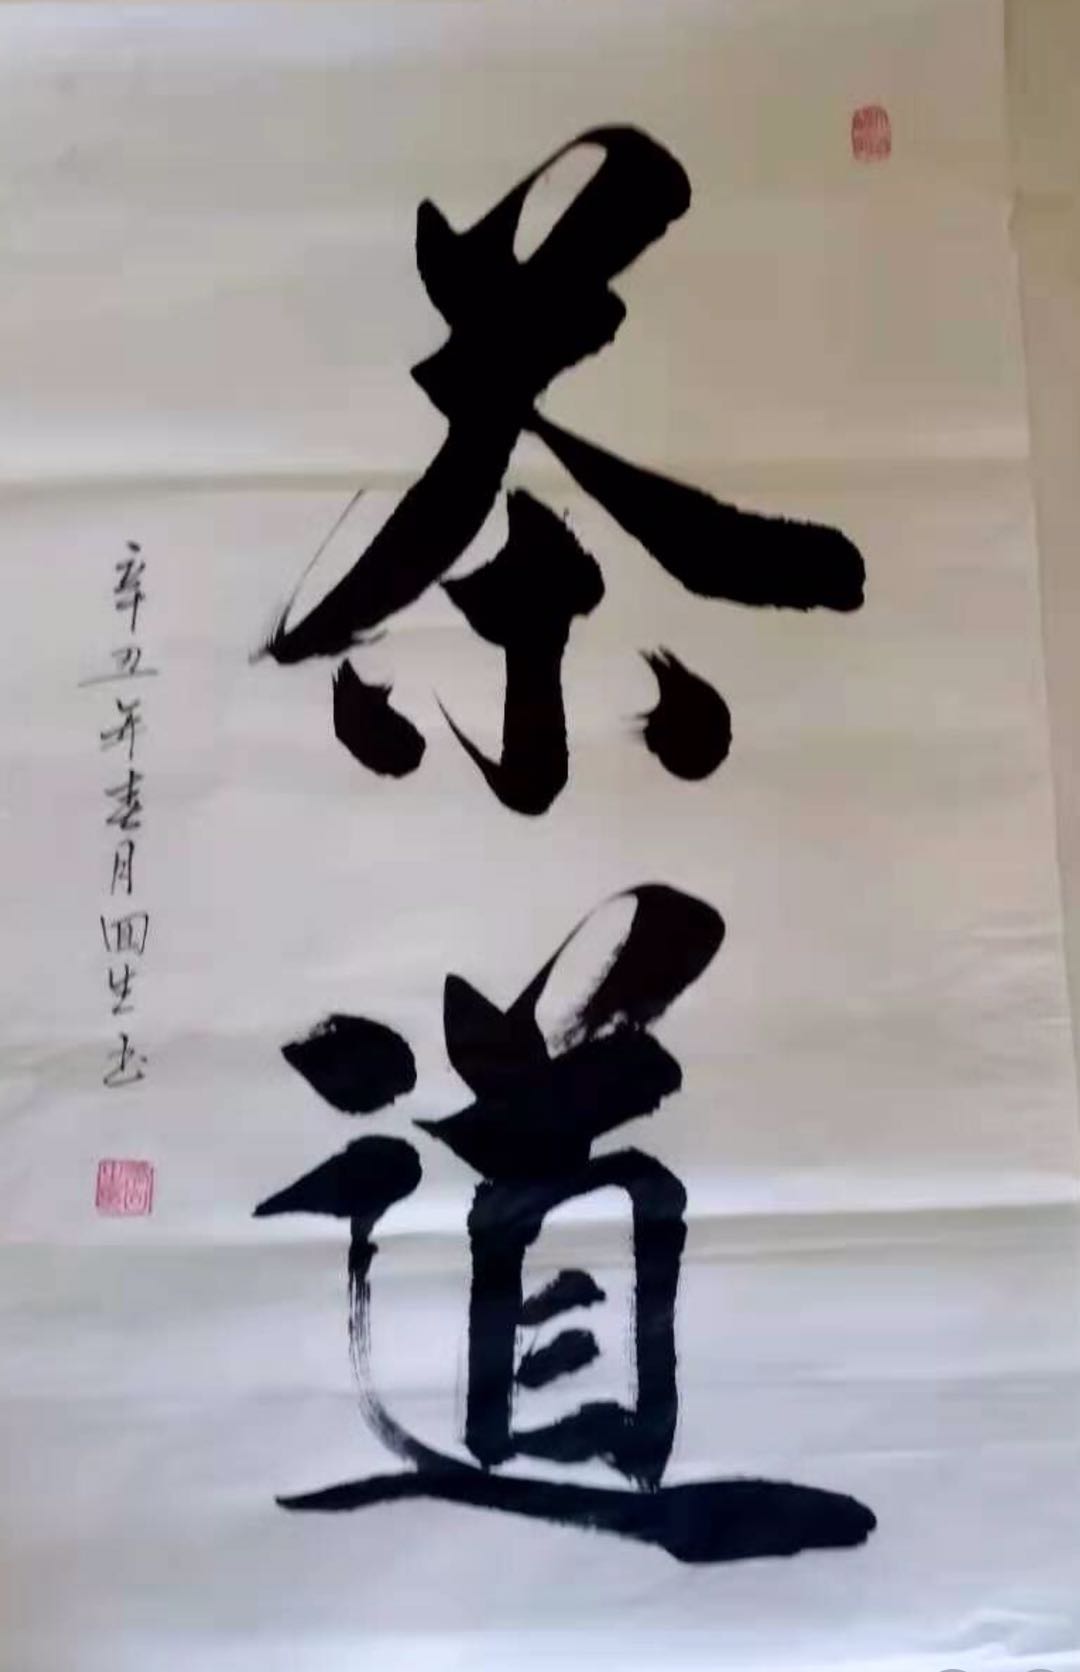 茶道
辛丑年春月圆生书